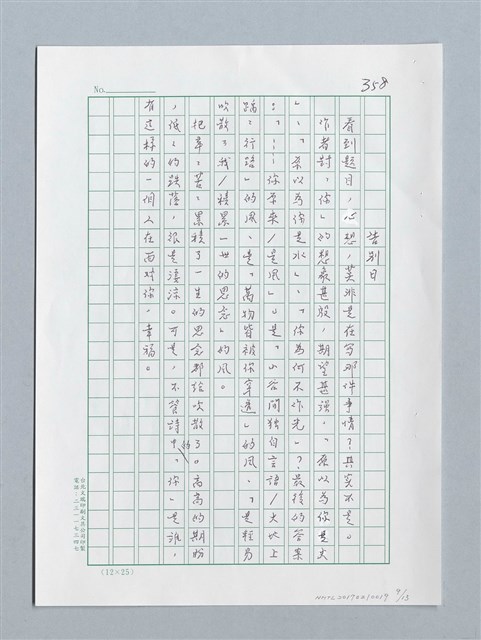 No.
358
告別日
看到題目，心想，莫非是在寫那件事情？其實不是。
作者對「你」的想像甚殷，期望甚強，「原以為你是火
」、「原以為你是水」、「你為何不作光」？最後的答案
：——你原來／是風」。是「山谷間獨自言語／大地上
踽踽行路」的風，是「萬物皆被你穿透」的風，是輕易
吹散「我／積累一世的思念」的風。
把辛辛苦苦累積了一生的思念都給吹散了。高高的期盼
，低低的跌落，很是淒涼。可是，不管詩中的「你」是誰，
有這樣的一個人在面對你，幸福。
(12×25)
9/13